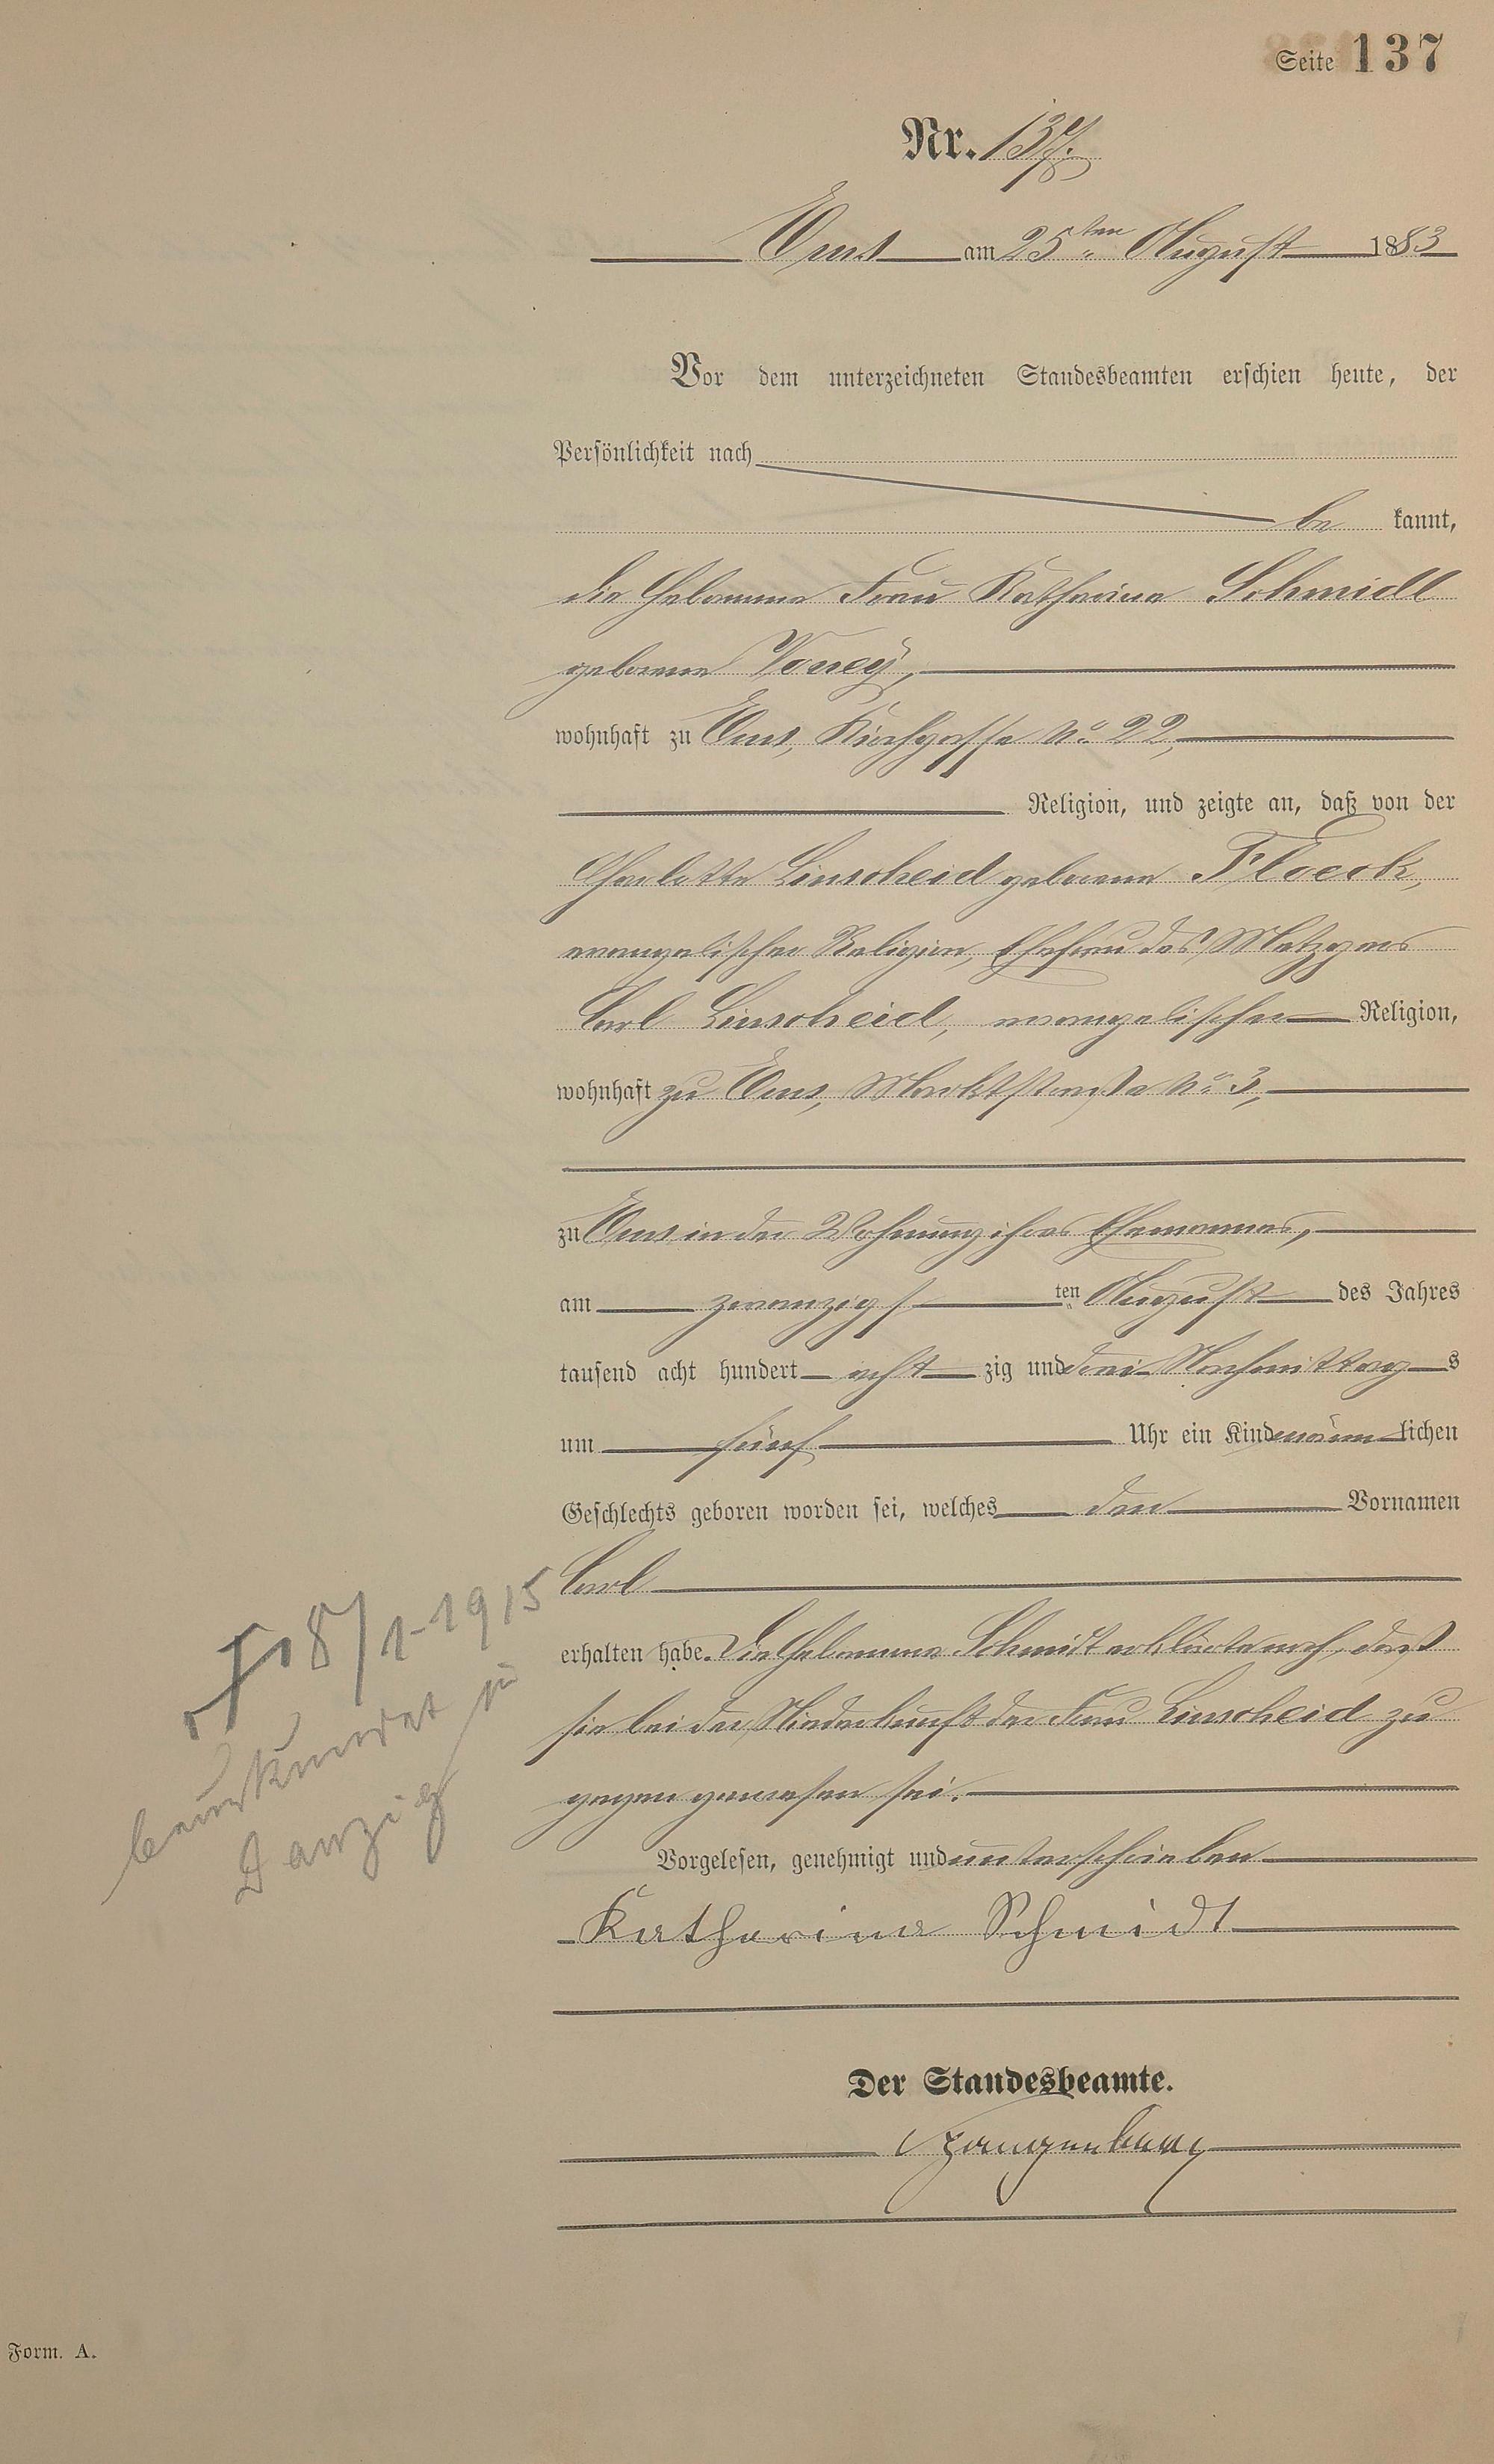 Seite 137
Nr. 137.
Ems am 25ten August 1883
Vor dem unterzeichneten Standesbeamten erschien heute, der
Persönlichkeit nach
be kannt,
die Hebamme Frau Katharina Schmidt
geborene
wohnhaft zu Ems, Kirchgasse No 22,
Religion, und zeigte an, daß von der
Charlotte Linscheid geborene Flöck,
evangelischer Religion, Ehefrau des Metzgers
Carl Linscheid, evangelischer Religion,
wohnhaft zu Ems, Marktstraße No 3,
zu Ems in der Wohnung ihres Ehemannes,
am zwanzigsten August des Jahres
tausend acht hundert achtzig und drei Nachmittags
um fünf Uhr ein Kind männlichen
Geschlechts geboren worden sei, welches den Vornamen
Carl
erhalten habe. Die Hebamme Schmidt erklärte noch, daß
sie bei der Niederkunft der Frau Linscheid zu
gegen gewesen sei.
Vorgelesen, genehmigt und unterschrieben
Katharina Schmidt
Der Standesbeamte.
Spangenberg
† 18/1-1915
beurkundet in
Danzig
Form. A.